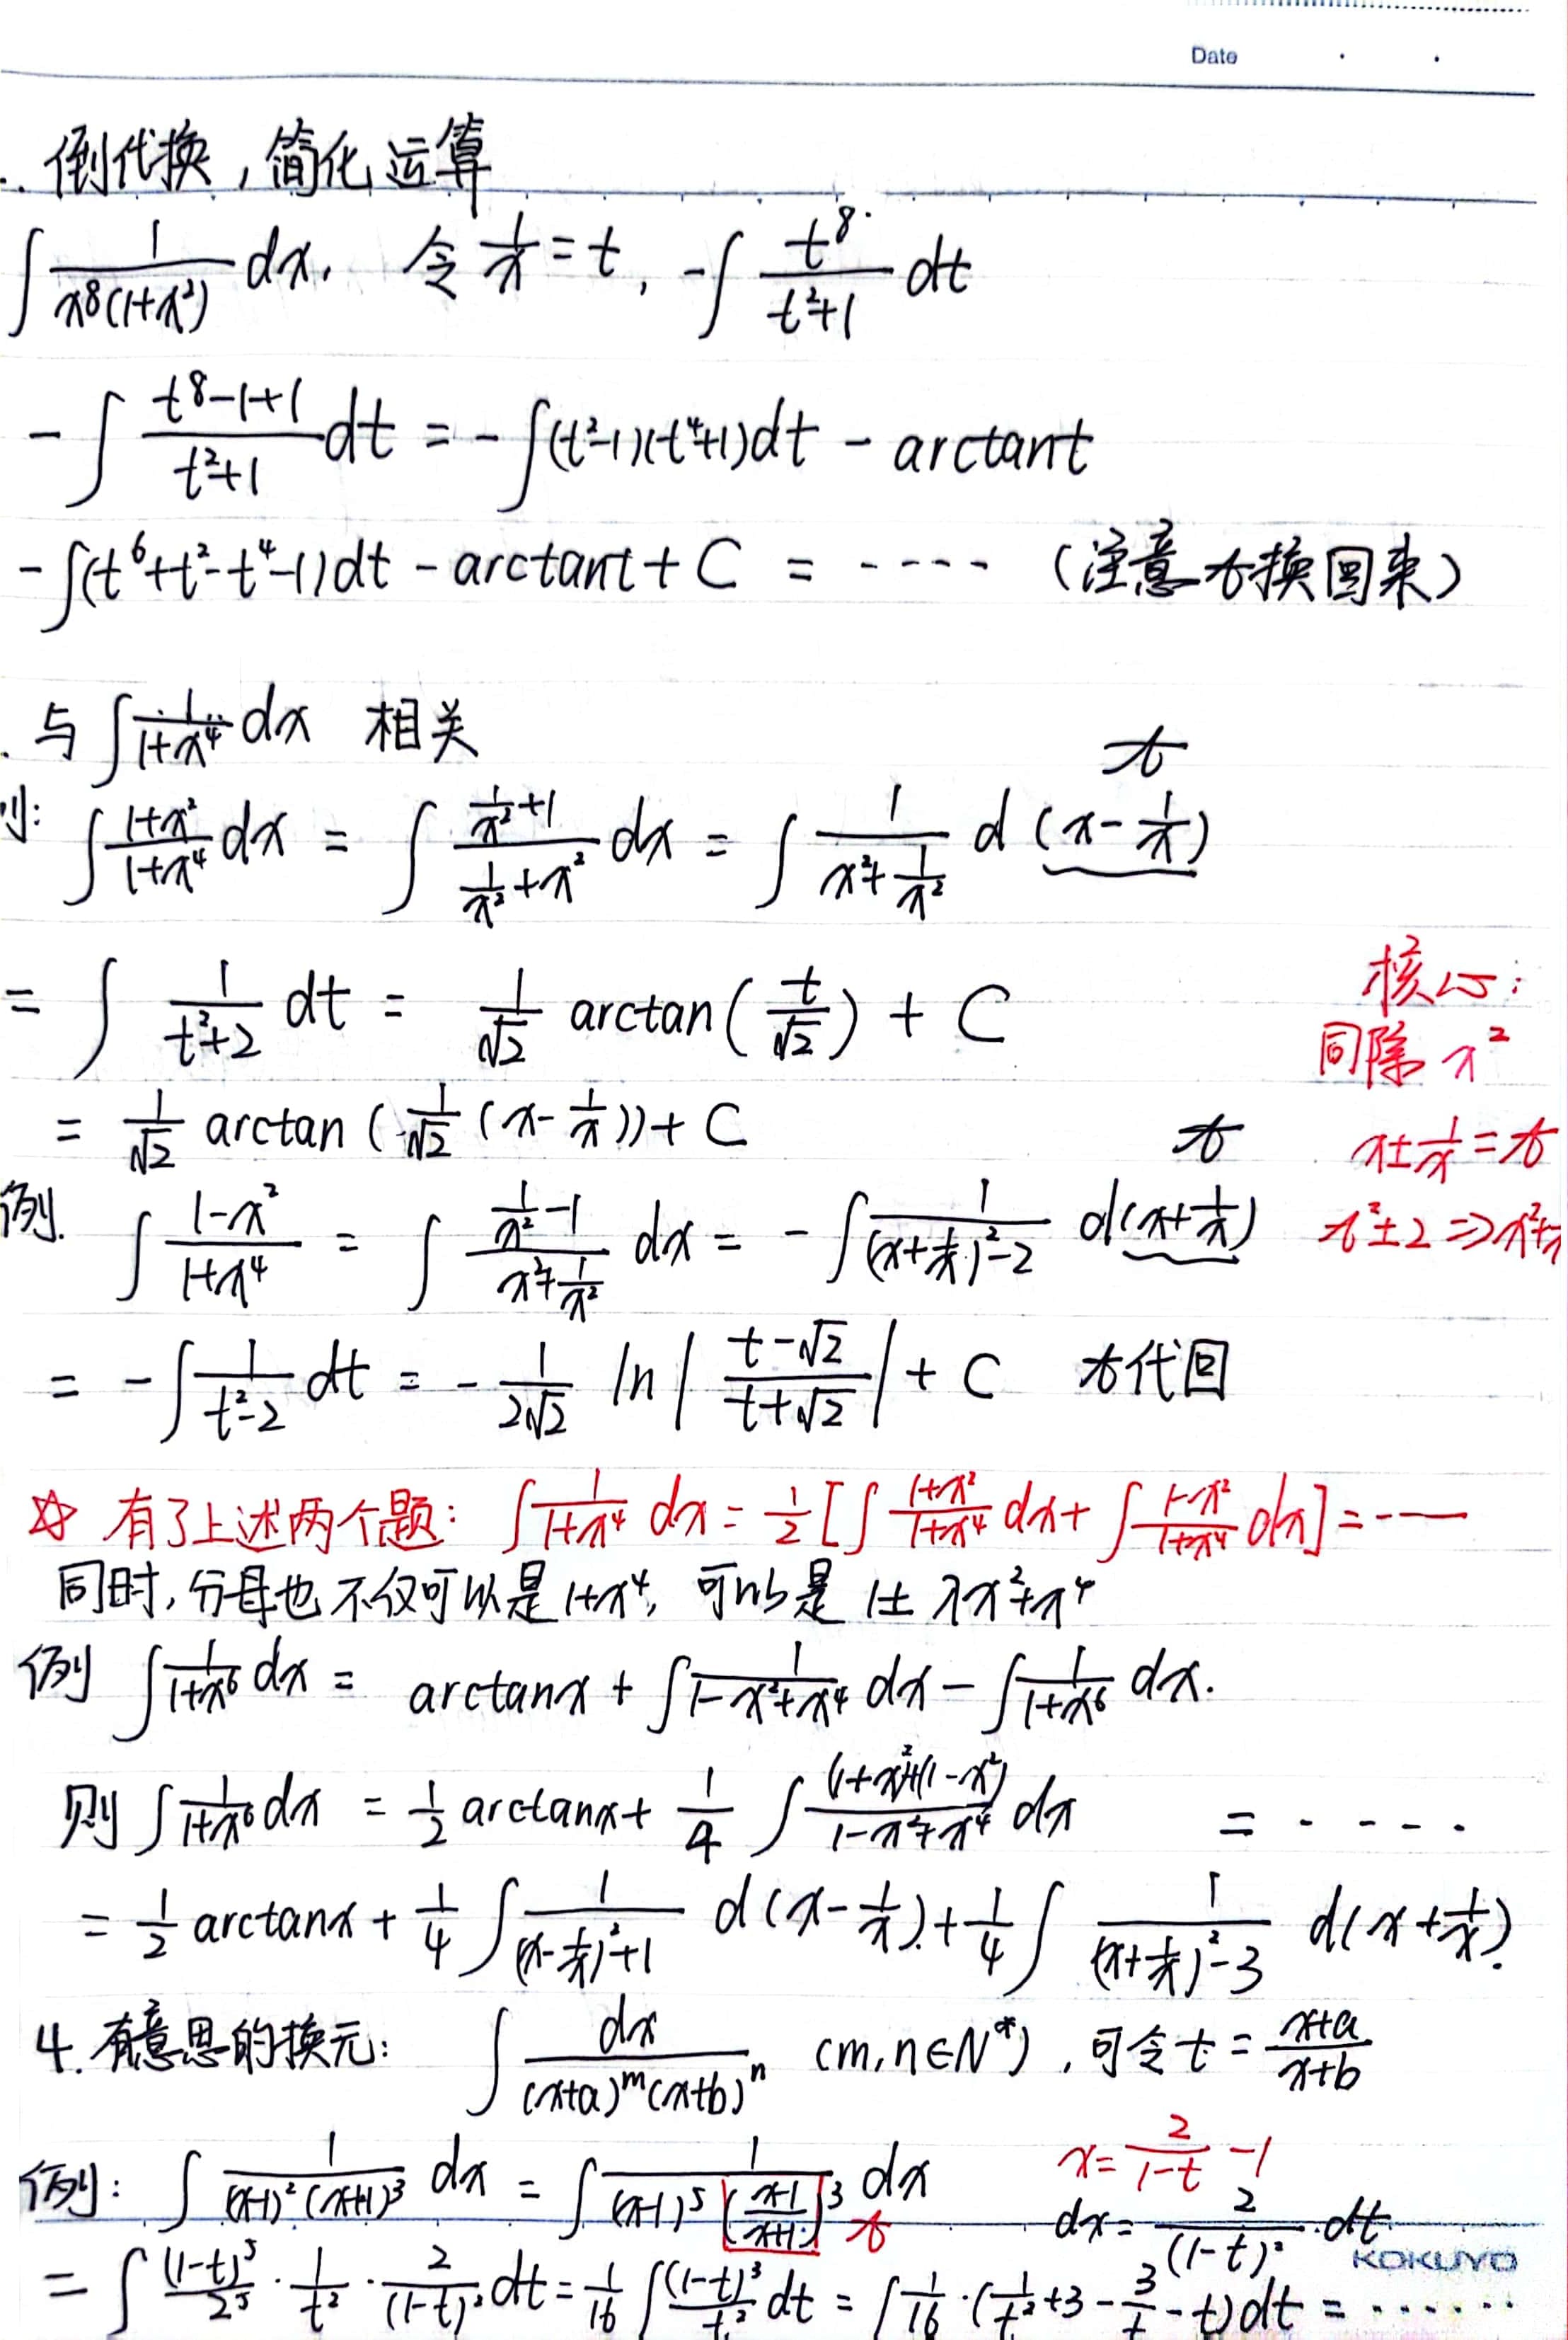 Date
. 倒代换,简化运算
∫ 1/(x⁸(1+x²)) dx. 令 1/x = t, -∫ t⁸/(t²+1) dt
-∫ (t⁸-1+1)/(t²+1) dt = -∫(t²-1)(t⁴+1)dt - arctant
-∫(t⁶+t²-t⁴-1)dt - arctant + C = ---- (注意t换回来)
. 与 ∫ 1/(1+x⁴) dx 相关
t
例: ∫ (1+x²)/(1+x⁴) dx = ∫ (1/x²+1)/(1/x²+x²) dx = ∫ 1/(x²+1/x²) d(x-1/x)
= ∫ 1/(t²+2) dt = 1/√2 arctan(t/√2) + C
核心:
同除 x²
= 1/√2 arctan(1/√2 (x-1/x)) + C
t
x±1/x = t
例. ∫ (1-x²)/(1+x⁴) = ∫ (1/x²-1)/(x²+1/x²) dx = -∫ 1/((x+1/x)²-2) d(x+1/x)
t²±2 ⇒ x²+
= -∫ 1/(t²-2) dt = -1/(2√2) ln|(t-√2)/(t+√2)| + C t代回
☆ 有了上述两个题: ∫ 1/(1+x⁴) dx = 1/2 [∫ (1+x²)/(1+x⁴) dx + ∫ (1-x²)/(1+x⁴) dx] = ----
同时,分母也不仅可以是1+x⁴, 可以是 1±λx²+x⁴
例 ∫ 1/(1+x⁶) dx = arctanx + ∫ 1/(1-x²+x⁴) dx - ∫ 1/(1+x⁶) dx.
则 ∫ 1/(1+x⁶) dx = 1/2 arctanx + 1/4 ∫ ((1+x²)+(1-x²))/(1-x²+x⁴) dx = - - - -
= 1/2 arctanx + 1/4 ∫ 1/((x-1/x)²+1) d(x-1/x) + 1/4 ∫ 1/((x+1/x)²-3) d(x+1/x).
4. 有意思的换元: ∫ dx/((x+a)ᵐ(x+b)ⁿ) (m,n∈N*), 可令 t = (x+a)/(x+b)
例: ∫ 1/((x-1)²(x+1)³) dx = ∫ 1/((x-1)⁵ ((x-1)/(x+1))³) dx
t
x = 2/(1-t) - 1
dx = 2/(1-t)² dt
KOKUYO
= ∫ (1-t)⁵/2⁵ · 1/t² · 2/(1-t)² dt = 1/16 ∫ (1-t)³/t² dt = ∫ 1/16 · (1/t²+3-3/t-t)dt = ······